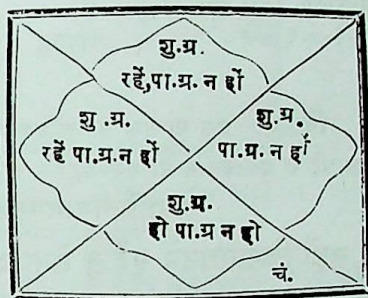 शु.ग्र.
रहें,पा.ग्र. न हों
शु.ग्र.
रहें पा.ग्र.न हों
शु.ग्र.
पा.ग्र. न हों
शु.ग्र.
हो पा.ग्र न हो
चं.